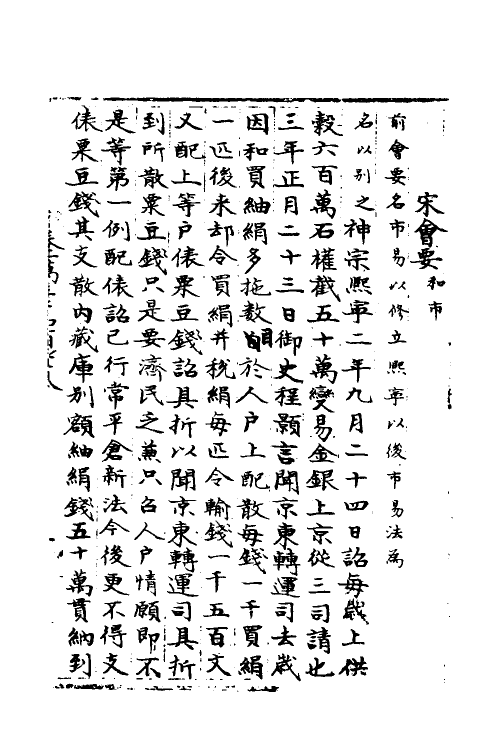 宋會要 和市
前會要名市易以修立熙寧以後市易法為
名以別之神宗熙寧二年九月二十四日詔每歲上供
穀六百萬石權截五十萬變易金銀上京從三司請也
三年正月二十三日御史程顥言聞京東轉運司去歲
因和買紬絹多拖數目於人戶上配散每錢一千買絹
一匹後來却令買絹并稅絹每匹令輸錢一千五百文
又配上等戶俵粟豆錢詔具折以聞京東轉運司具折
到所散粟豆錢只是要濟民乏兼只召人戶情願即不
是等第一例配俵詔已行常平倉新法今後更不得支
俵粟豆錢其支散內藏庫別額紬絹錢五十萬貫納到